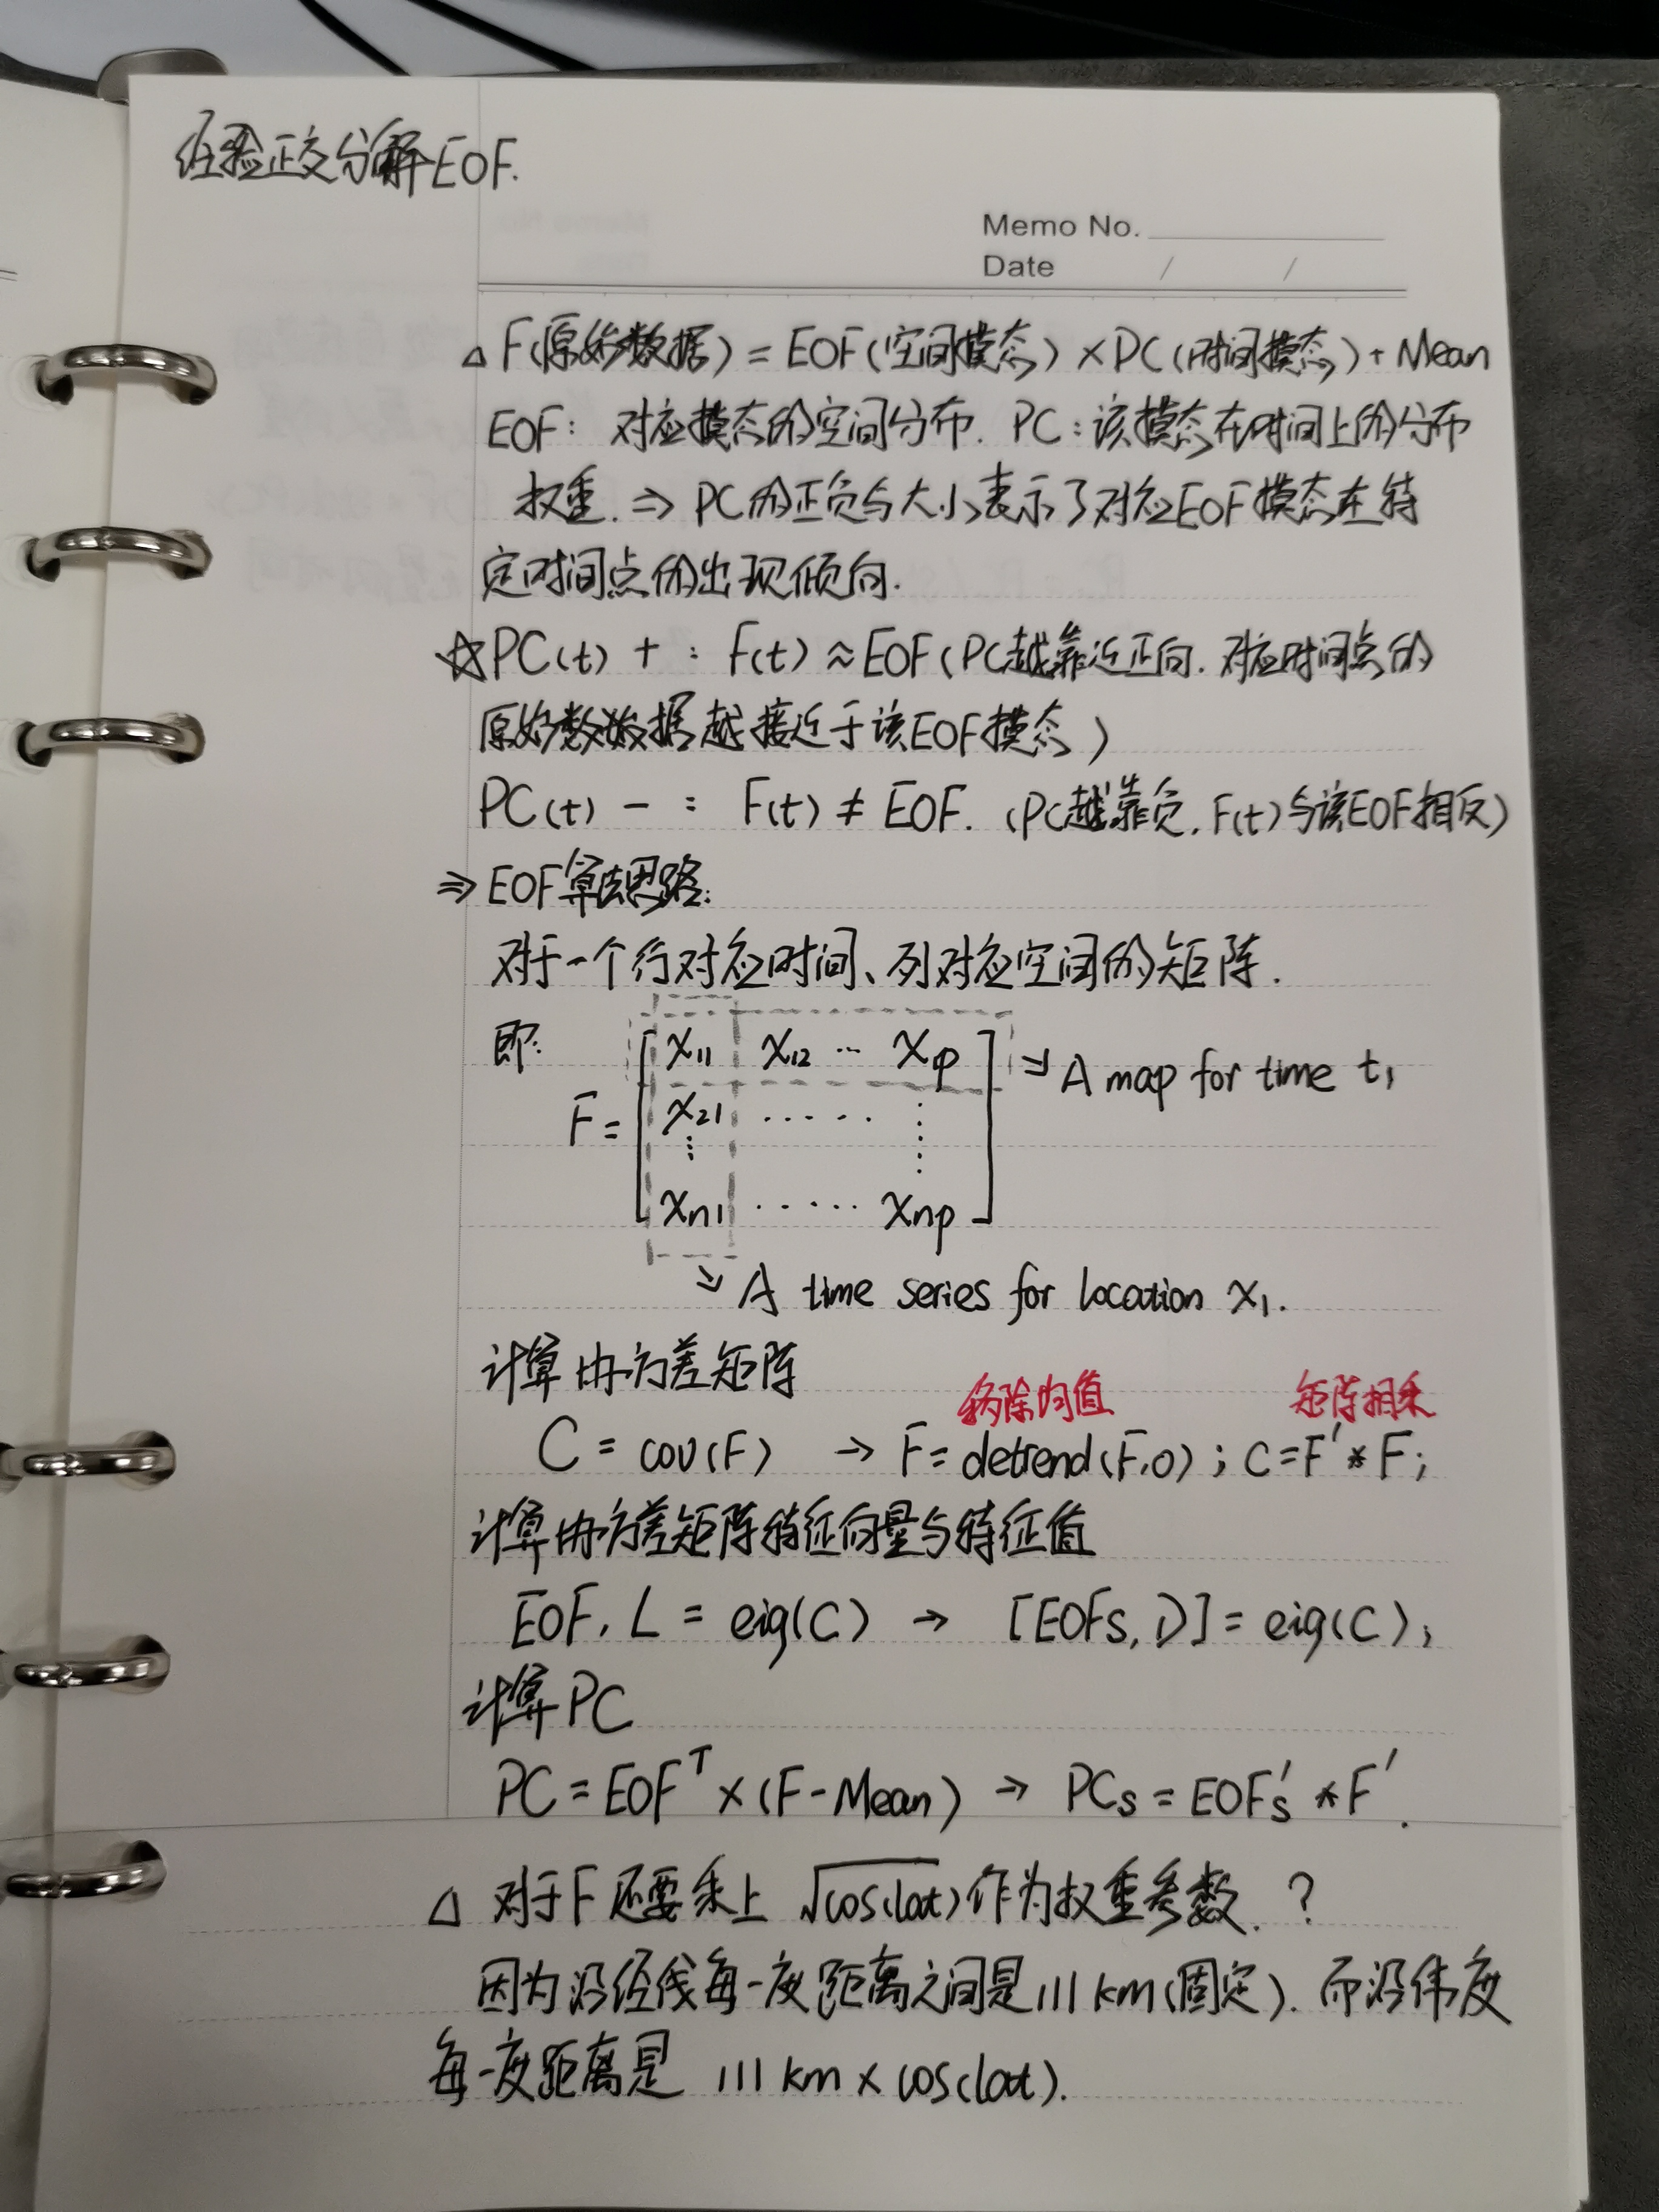 经验正交分解EOF.
Memo No.
Date / /
△ F(原始数据) = EOF(空间模态) × PC(时间模态) + Mean
EOF: 对应模态的空间分布. PC: 该模态在时间上的分布
权重. ⇒ PC的正负与大小表示了对应EOF模态在特
定时间点的出现倾向.
☆PC(t) + : F(t) ≈ EOF (PC越靠近正向. 对应时间点的
原始数据越接近于该EOF模态)
PC(t) - : F(t) ≠ EOF. (PC越靠负, F(t)与该EOF相反)
⇒ EOF算法思路:
对于一个行对应时间、列对应空间的矩阵.
即:
F = [ X11 X12 ... X1p ] → A map for time t1
X21 ...... ⋮
⋮ ⋮
Xn1 ...... Xnp
→ A time series for location X1.
计算协方差矩阵
移除均值 矩阵相乘
C = cov(F) → F = detrend(F,0) ; C=F' * F;
计算协方差矩阵特征向量与特征值
EOF, L = eig(C) → [EOFs, D] = eig(C);
计算PC
PC = EOF^T × (F-Mean) → PCs = EOFs' * F'.
△ 对于F还要乘上 √cos(lat) 作为权重参数. ?
因为沿经线每一度距离之间是111km(固定). 而沿纬度
每一度距离是 111 km × cos(lat).